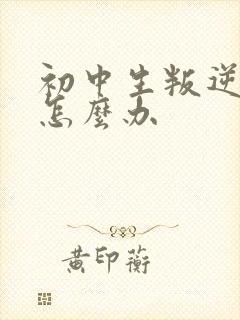 初中生叛逆
怎麼办
黄印蘅